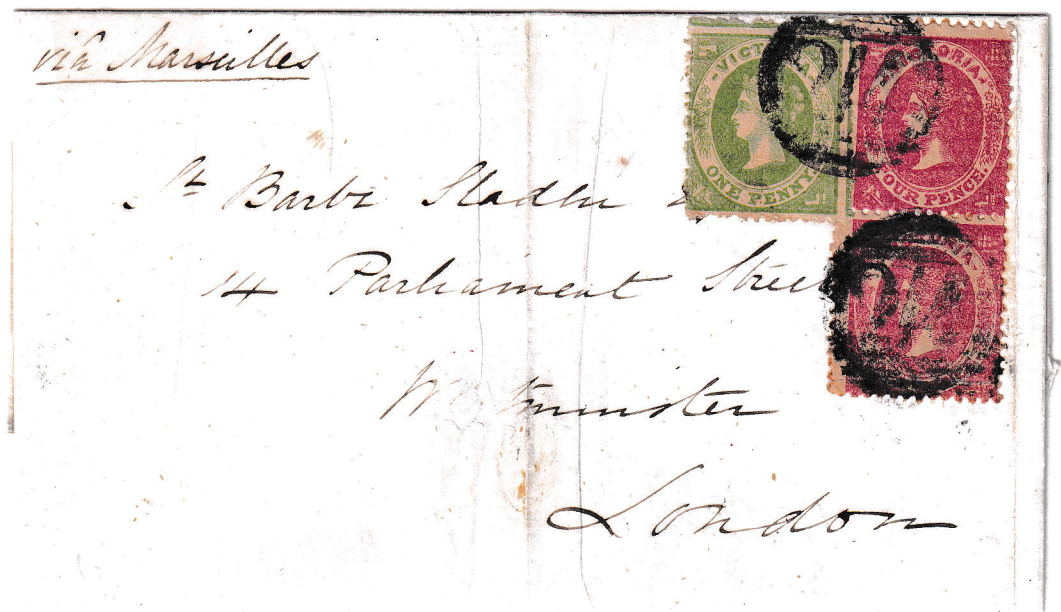 via Marseilles
VICTORIA
ONE PENNY
VICTORIA
FOUR PENCE
St Barbe Sladen
14 Parliament Street
Westminster
London